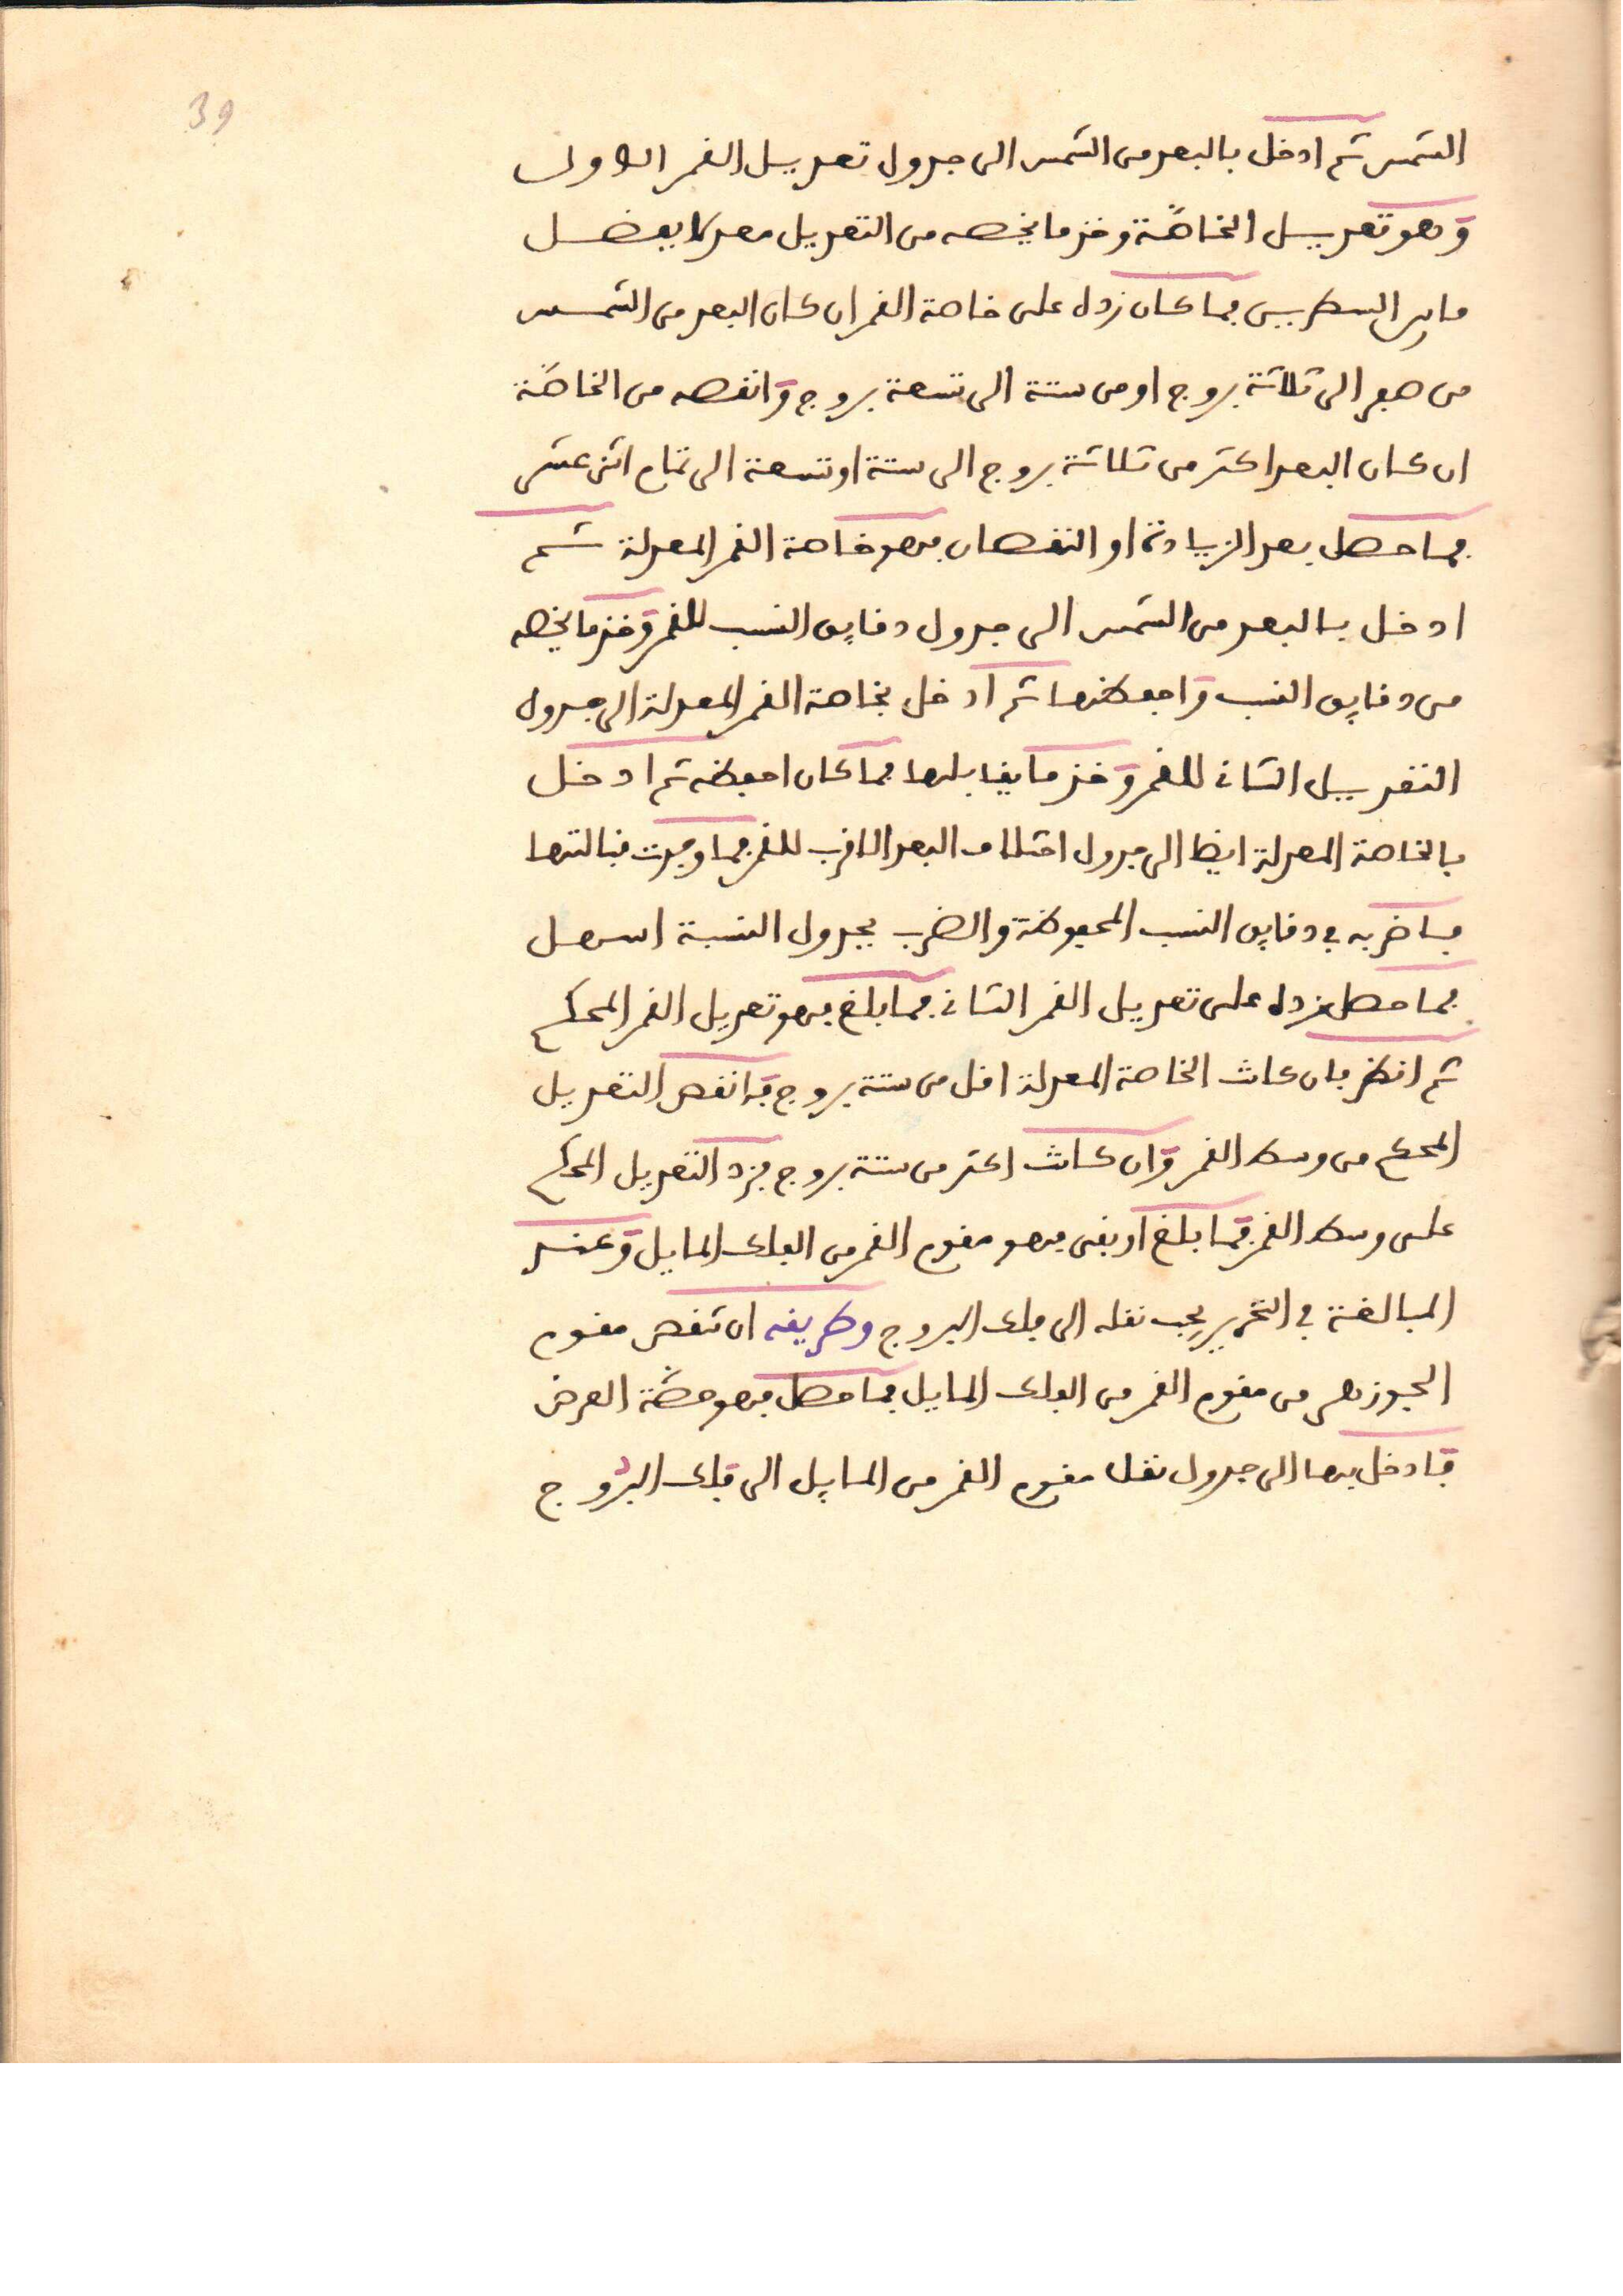 39
الشمس ثم ادخل بالبعد من الشمس الى جدول تعديل القمر الاول
وهو تعديل الخاصّة وخذ ما يخصه من التعديل معدلا بفضل
ما بين السطرين فما كان زده على خاصة القمر ان كان البعد من الشمس
من صفر الى ثلاثة بروج او من ستة الى تسعة بروج وانقصه من الخاصّة
ان كان البعد اكثر من ثلاثة بروج الى ستة او تسعة الى تمام اثنى عشر
فما حصل بعد الزيادة او النقصان فهو خاصة القمر المعدلة ثم
ادخل بالبعد من الشمس الى جدول دقايق النسب للقمر وخذ ما يخصه
من دقايق النسب واحفظها ثم ادخل بخاصة القمر المعدلة الى جدول
التعديل الثانى للقمر وخذ ما يقابلها فما كان احفظه ثم ادخل
بالخاصة المعدلة ايضا الى جدول اختلاف البعد الاقرب للقمر فما وجدت قبالتها
فاضربه في دقايق النسب المحفوظة والضرب بجدول النسبة اسهل
فما حصل زده على تعديل القمر الثانى فما بلغ فهو تعديل القمر المحكم
ثم انظر فان كانت الخاصة المعدلة اقل من ستة بروج فانقص التعديل
المحكم من وسط القمر وان كانت اكثر من ستة بروج فزد التعديل المحكم
على وسط القمر فما بلغ او بقى فهو مقوم القمر من الفلك المايل وعند
المبالغة في التحرير يجب نقله الى فلك البروج وطريقه ان تنقص مقوم
الجوزهر من مقوم القمر من الفلك المايل فما حصل فهو حصّة العرض
فادخل بها الى جدول نقل مقوم القمر من المايل الى فلك البروج